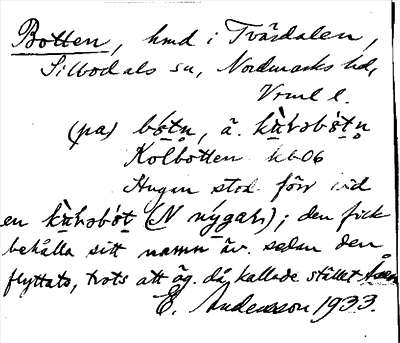 Botten, hmd i Tvärdalen,
Silbodals sn, Nordmarks hd,
Vrml l.
(pa) bo̱tn̥, ä. kùlsbo̱tn̥
Kolbotten hb06
Hugan stod förr vid
en kùlsbot (N nýgah); den fick
behålla sitt namn äv. sedan den
flyttats, trots att äg. då kallade stället
E. Andersson 1933.